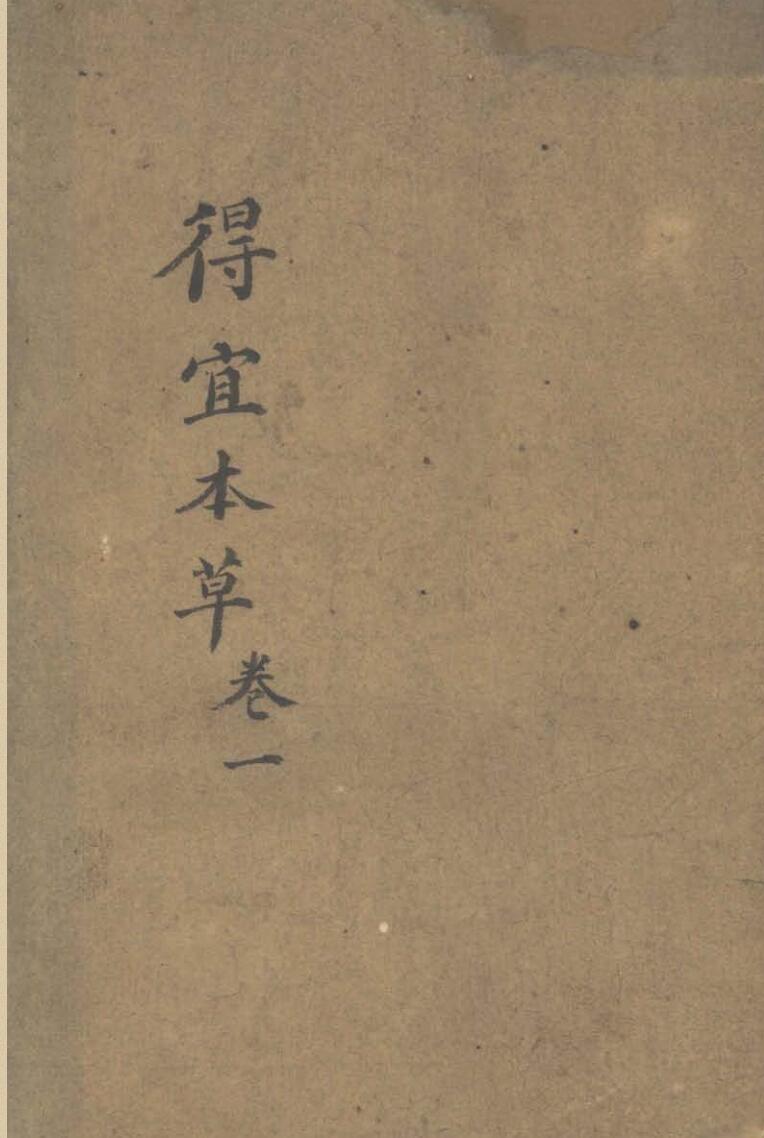 得宜本草卷一